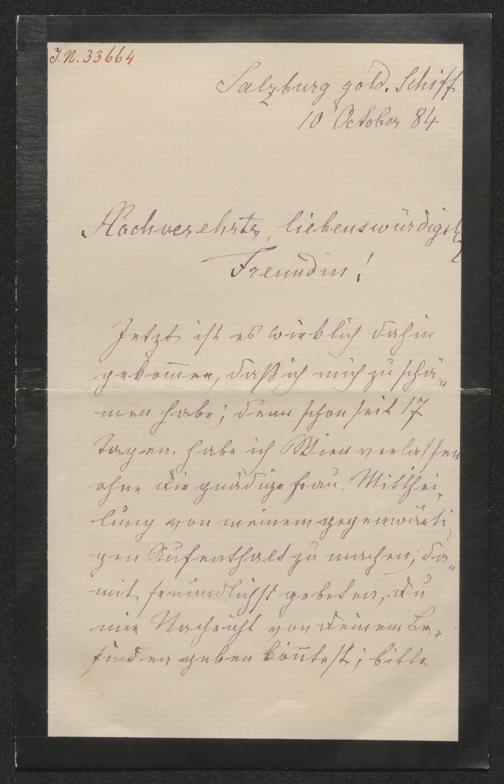 J.N. 33664
Salzburg gold. Schiff
10 October 84
Hochverehrte, liebenswürdigste
Freundin!
Jetzt ist es wirklich dahin
gekommen, daß ich mich zu schä-
men habe; denn schon seit 17
Tagen habe ich Wien verlassen
ohne die gnädige Frau, Mitthei-
lung von meinem gegenwärti
gen Aufenthalt zu machen, da-
mit, freundlichst gebeten, Du
mir Nachricht von Deinem Be-
finden geben könntest; bitte